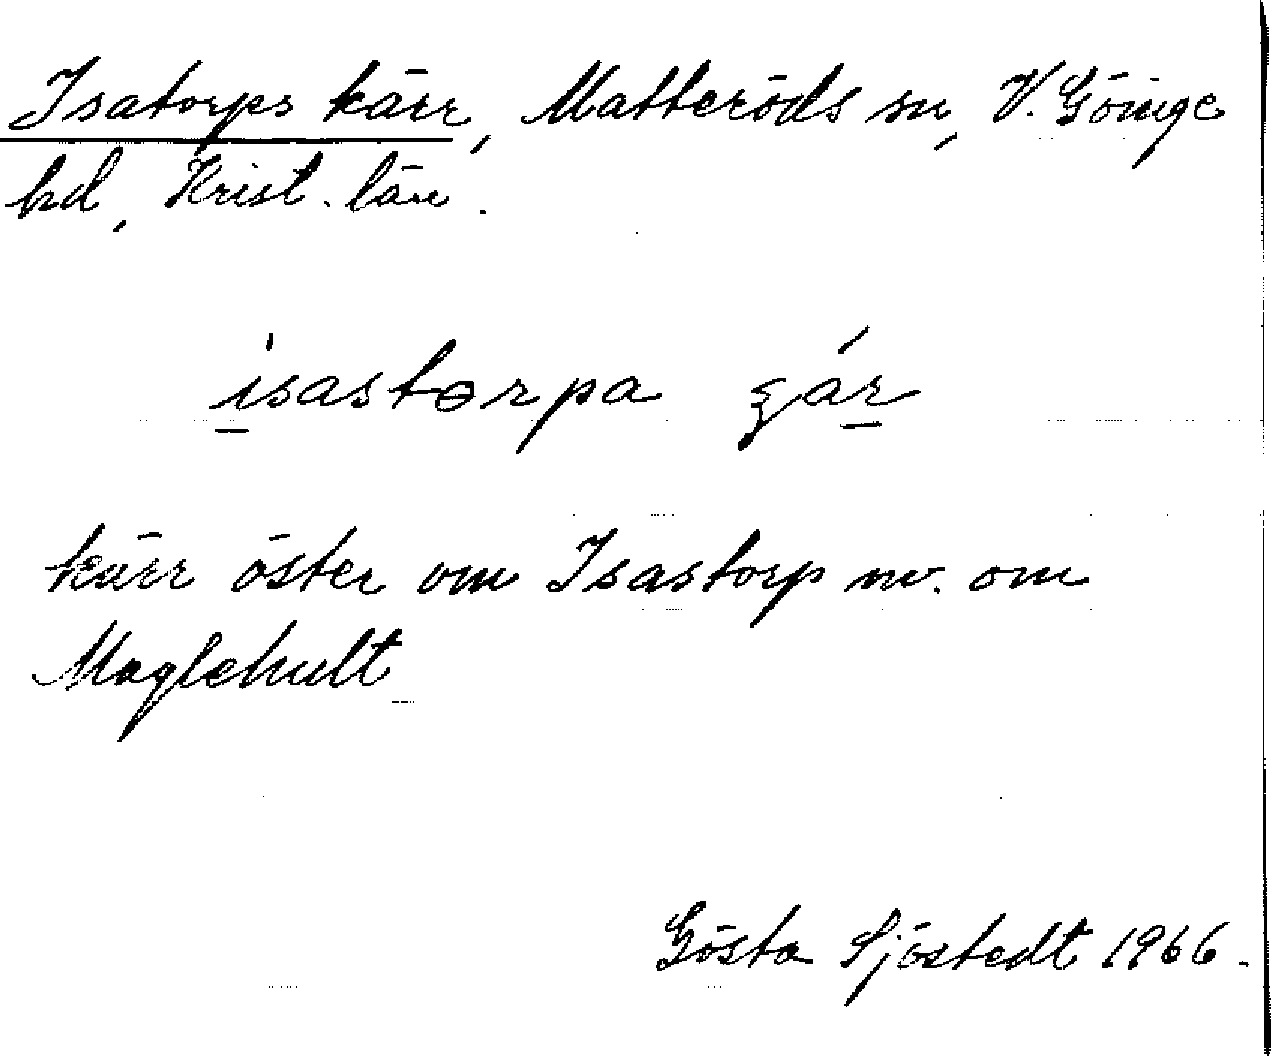 Isatorps kärr, Matteröds sn, V. Göinge
hd, Krist. län.
isastɵrpa
kärr öster om Isastorp nv. om
Maglehult
Gösta Sjöstedt 1966.